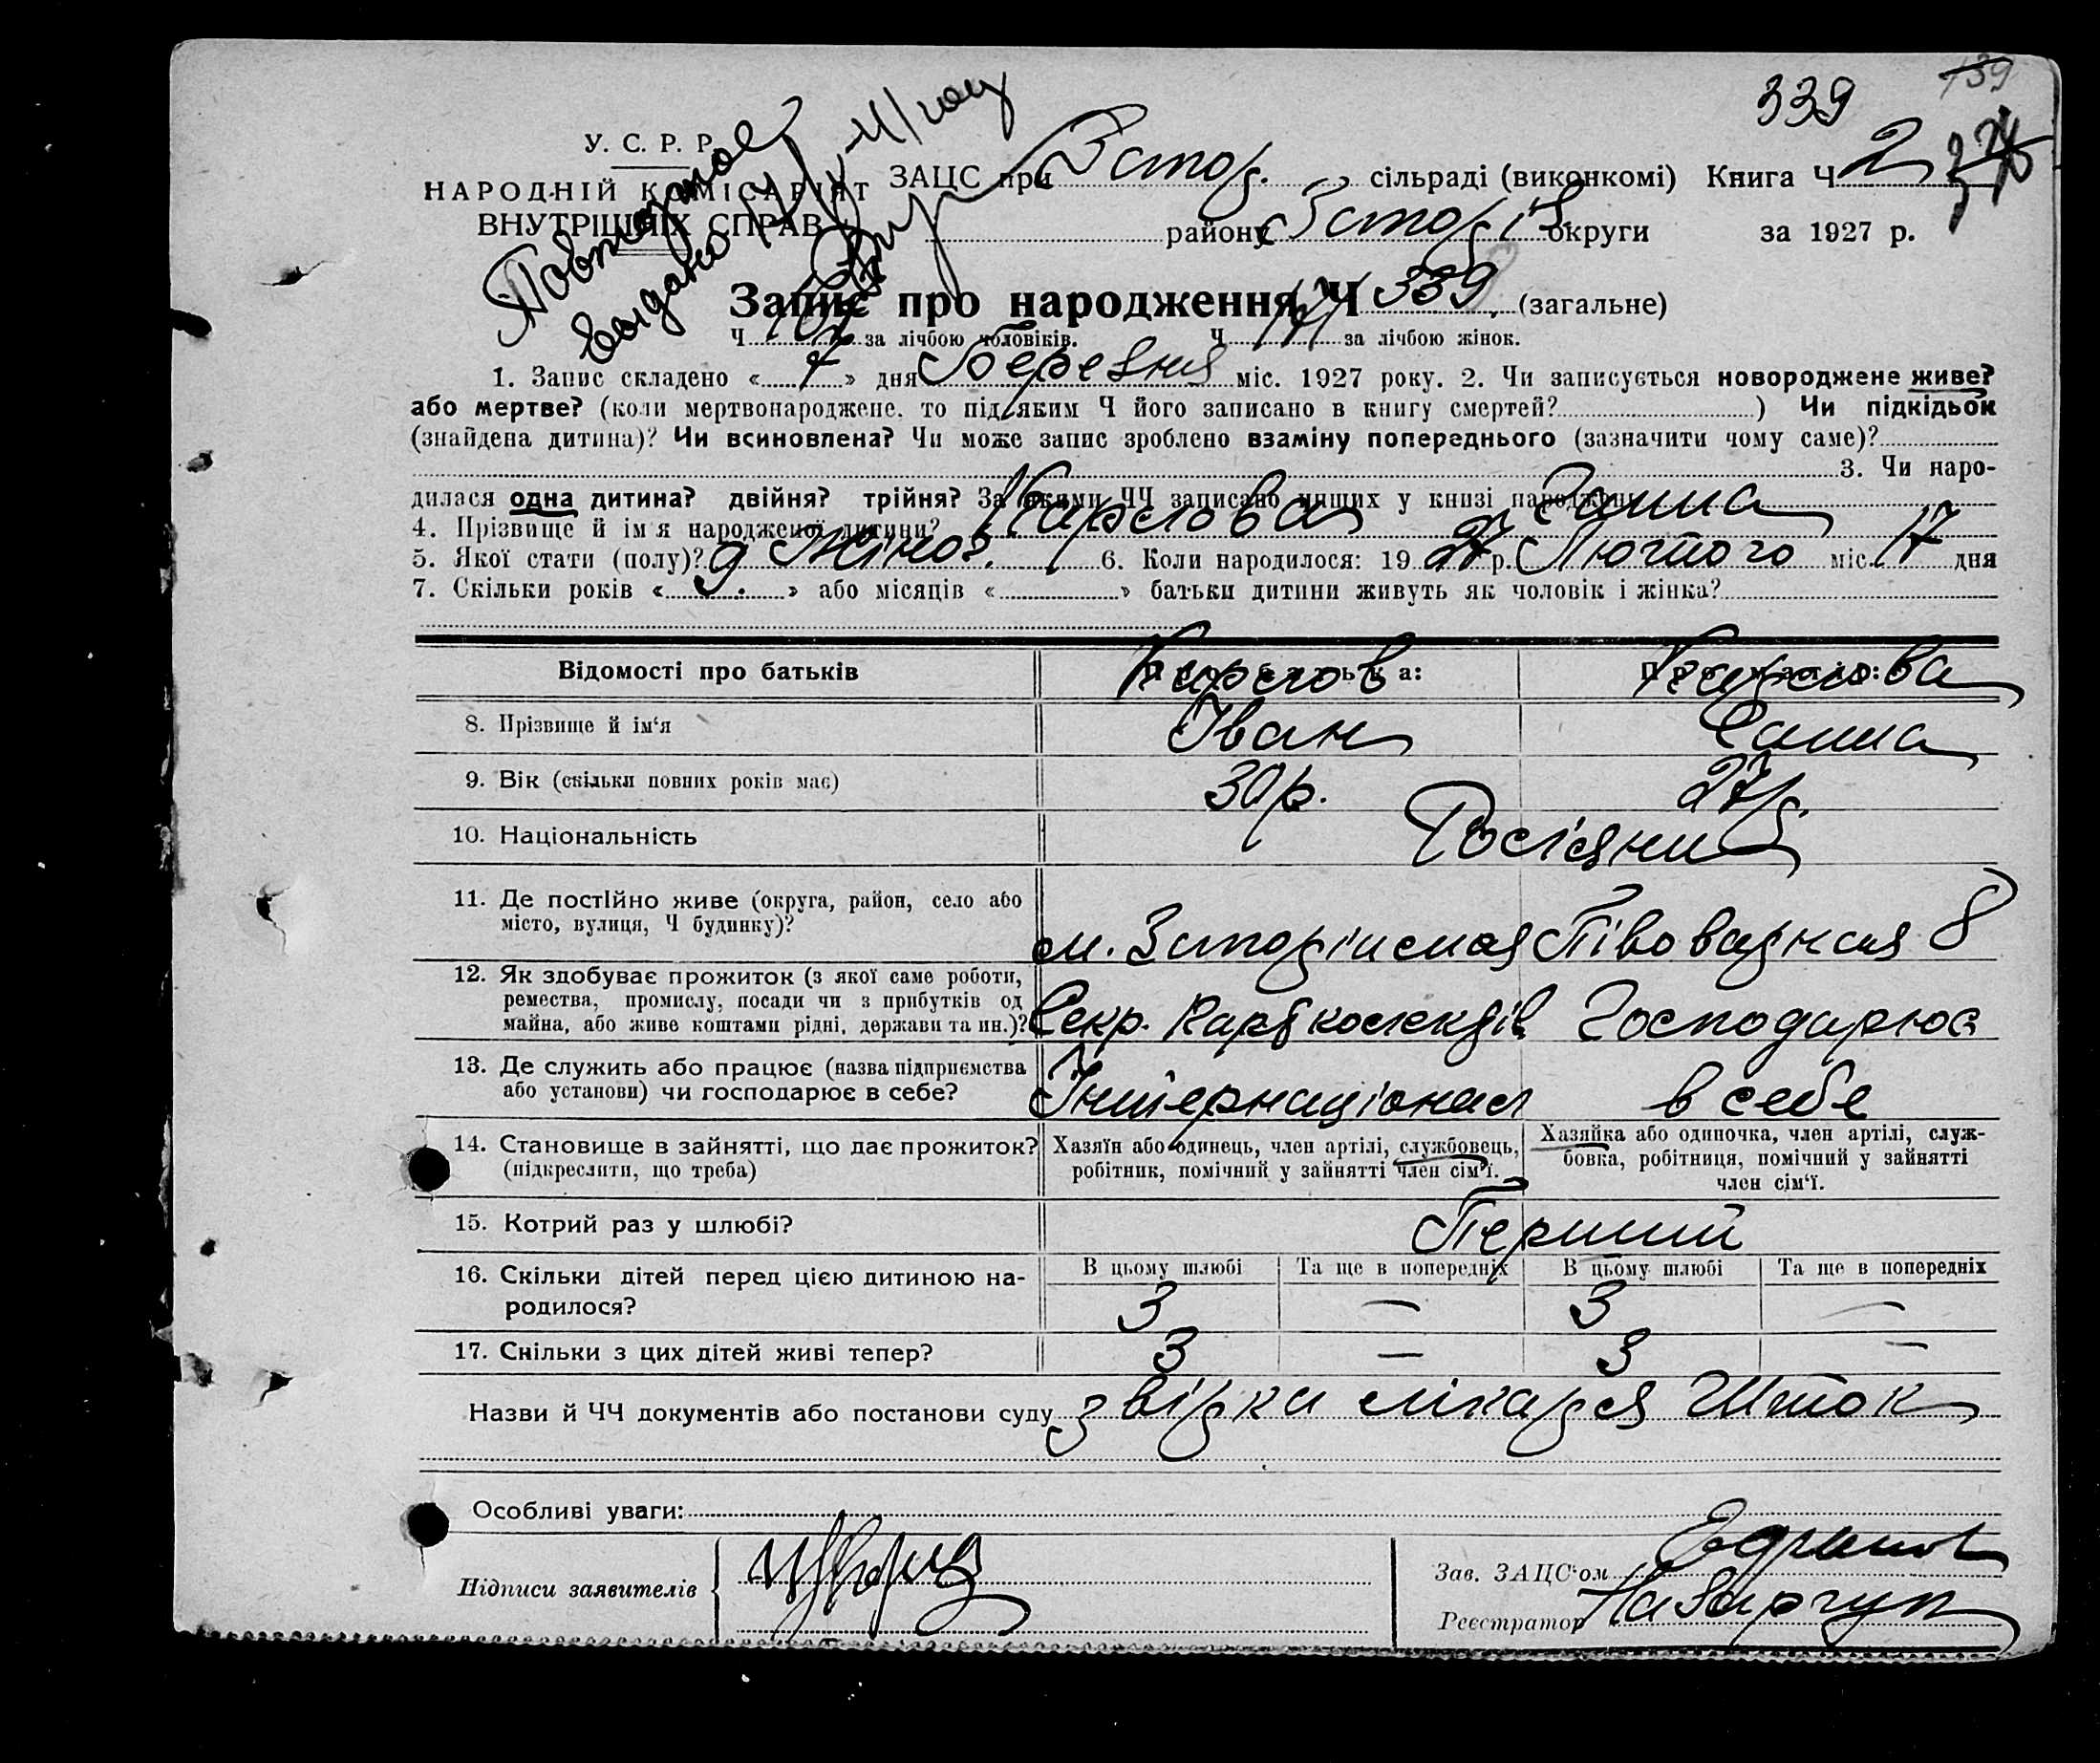 339 139
У. С. Р. Р.
НАРОДНІЙ КОМІСАРІЯТ
ВНУТРІШНІХ СПРАВ
Повторное
выдано
ЗАЦС при Запор. сільраді (виконкомі) Книга Ч 2
району Запоріз округи за 1927 р.
Запис про народження Ч 339 (загальне)
Ч за лічбою чоловіків. Ч 171 за лічбою жінок.
1. Запис складено « 7 » дня Березня міс. 1927 року. 2. Чи записується новороджене живе?
або мертве? (коли мертвонароджене, то під яким Ч його записано в книгу смертей? ) Чи підкідьок
(знайдена дитина)? Чи всиновлена? Чи може запис зроблено взаміну попереднього (зазначити чому саме)?
3. Чи наро-
дилася одна дитина? двійня? трійня? За якими ЧЧ записано инших у книзі народжень
4. Прізвище й ім'я народженої дитини? Карслова Ганна
5. Якої стати (полу)? Жіноз. 6. Коли народилося: 19 27 р. Лютого міс. 17 дня
7. Скільки років « 9 » або місяців « » батьки дитини живуть як чоловік і жінка?
Відомості про батьків Про батька: Про матір:
Карслов Карслова
8. Прізвище й ім'я Іван Ганна
9. Вік (скільки повних років має) 30 р. 27 р.
10. Національність Росіяни
11. Де постійно живе (округа, район, село або
місто, вулиця, Ч будинку)? м. Запоріжжя Півоварная 8
12. Як здобуває прожиток (з якої саме роботи,
ремества, промислу, посади чи з прибутків од
майна, або живе коштами рідні, держави та ин.)? Секр. Господарює
13. Де служить або працює (назва підприємства
або установи) чи господарює в себе? Інтернаціонал в себе
14. Становище в зайнятті, що дає прожиток?
(підкреслити, що треба)
Хазяїн або одинець, член артілі, службовець,
робітник, помічний у зайнятті член сім'ї.
Хазяйка або одиночка, член артілі, служ-
бовка, робітниця, помічний у зайнятті
член сім'ї.
15. Котрий раз у шлюбі? Перший
16. Скільки дітей перед цією дитиною на-
родилося?
В цьому шлюбі Та ще в попередніх В цьому шлюбі Та ще в попередніх
3 — 3 —
17. Скільки з цих дітей живі тепер? 3 — 3 —
Назви й ЧЧ документів або постанови суду звірка лікаря Шток
Особливі уваги:
Підписи заявителів
Зав. ЗАЦС'ом
Реєстратор Назарчук